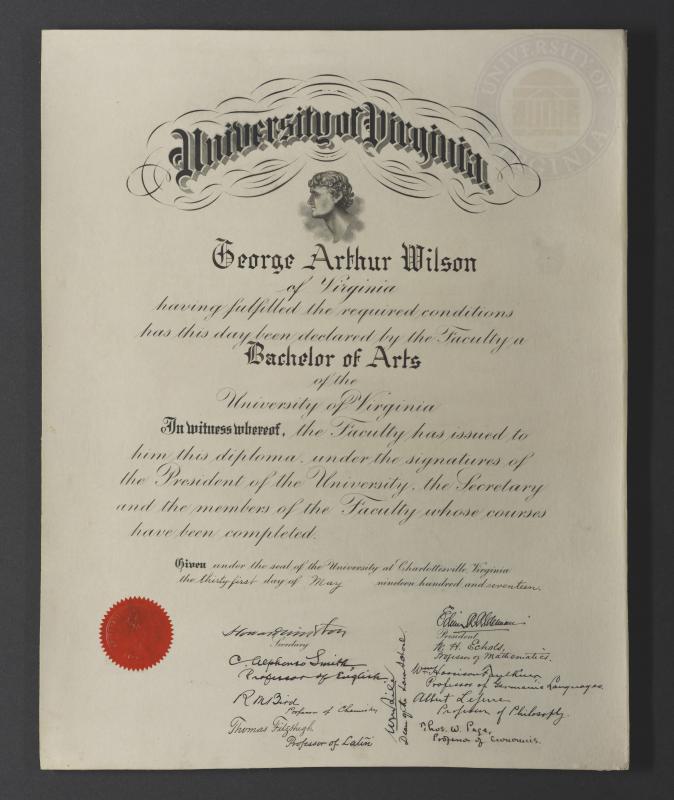 UNIVERSITY OF VIRGINIA
University of Virginia.
George Arthur Wilson
of Virginia
having fulfilled the required conditions
has this day been declared by the Faculty a
Bachelor of Arts
of the
University of Virginia
In witness whereof, the Faculty has issued to
him this diploma, under the signatures of
the President of the University, the Secretary
and the members of the Faculty whose courses
have been completed.
Given under the seal of the University at Charlottesville, Virginia
the thirty first day of May nineteen hundred and seventeen.
Secretary
C. Alphonso Smith
Professor of English
R M Bird
Professor of Chemistry
Thomas FitzHugh
Professor of Latin
Dean of the Law School
Edwin A. Alderman
President
W. H. Echols,
Professor of Mathematics.
Wm Harrison Faulkner
Professor of Germanic Languages
Albert Lefevre
Professor of Philosophy.
Thos. W. Page,
Professor of Economics.